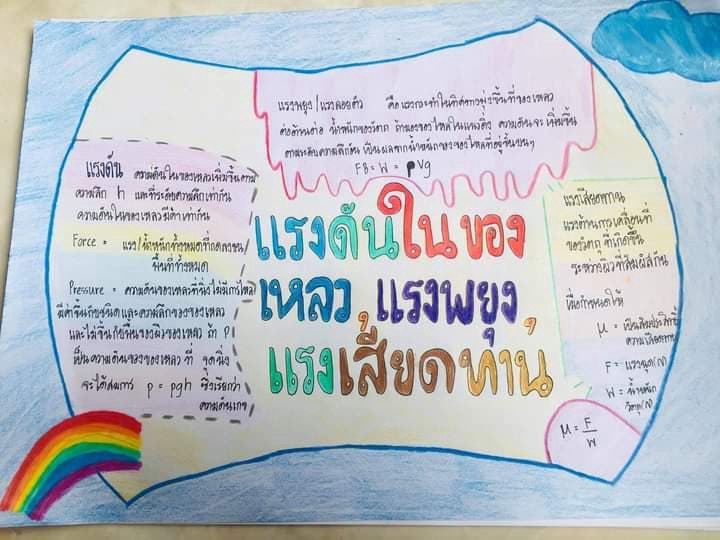 แรงดันในของ
เหลว แรงพยุง
แรงเสียดทาน
แรงพยุง/แรงลอยตัว คือแรงกระทำในทิศทางพุ่งขึ้นที่ของเหลว
ต่อต้านต่อ น้ำหนักของวัตถุ ถ้ามองของไหลในแนวดิ่ง ความดันจะเพิ่มขึ้น
ตามระดับความลึกอัน เป็นผลจากน้ำหนักของของไหลที่อยู่ชั้นบนๆ
FB = W = ρvg
แรงดัน ความดันในของเหลวเพิ่มขึ้นตาม
ความลึก h และที่ระดับความลึกเท่ากัน
ความดันในของเหลวมีค่าเท่ากัน
Force = แรง/น้ำหนักทั้งหมดที่กดลงบน
พื้นที่ทั้งหมด
Pressure = ความดันของเหลวที่นิ่งไม่มีการไหล
มีค่าขึ้นกับชนิดและความลึกของของเหลว
และไม่ขึ้นกับพื้นของผิวของเหลว ถ้า P
เป็นความดันของของเหลว ที่ จุดหนึ่ง
จะได้สมการ p = pgh ซึ่งเรียกว่า
ความดันเกจ
แรงเสียดทาน
แรงต้านการเคลื่อนที่
ของวัตถุ ที่เกิดขึ้น
ระหว่างผิวที่สัมผัสกัน
เมื่อกำหนดให้
μ = เป็นสัมประสิทธิ์
ความเสียดทาน
F = แรงฉุด(N)
W = น้ำหนัก
วัตถุ(N)
μ = F
W